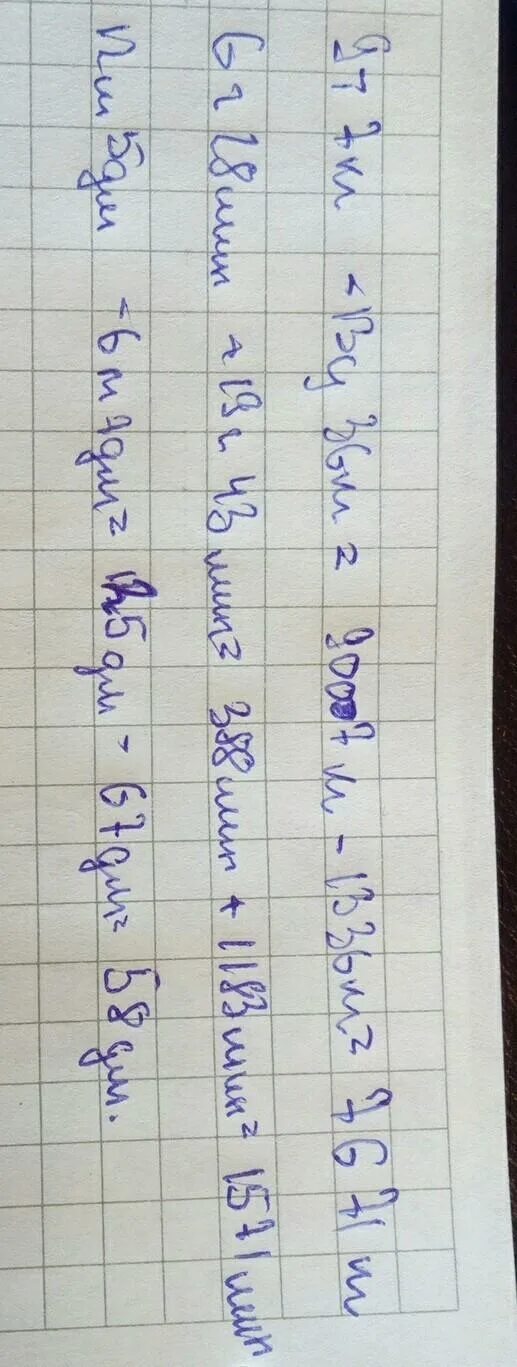 9т 7кг - 13ц 36кг = 9007кг - 1336кг = 7671кг
6ч 28мин + 19ч 43мин = 388мин + 1183мин = 1571мин
12м 5дм - 6м 7дм = 125дм - 67дм = 58дм.